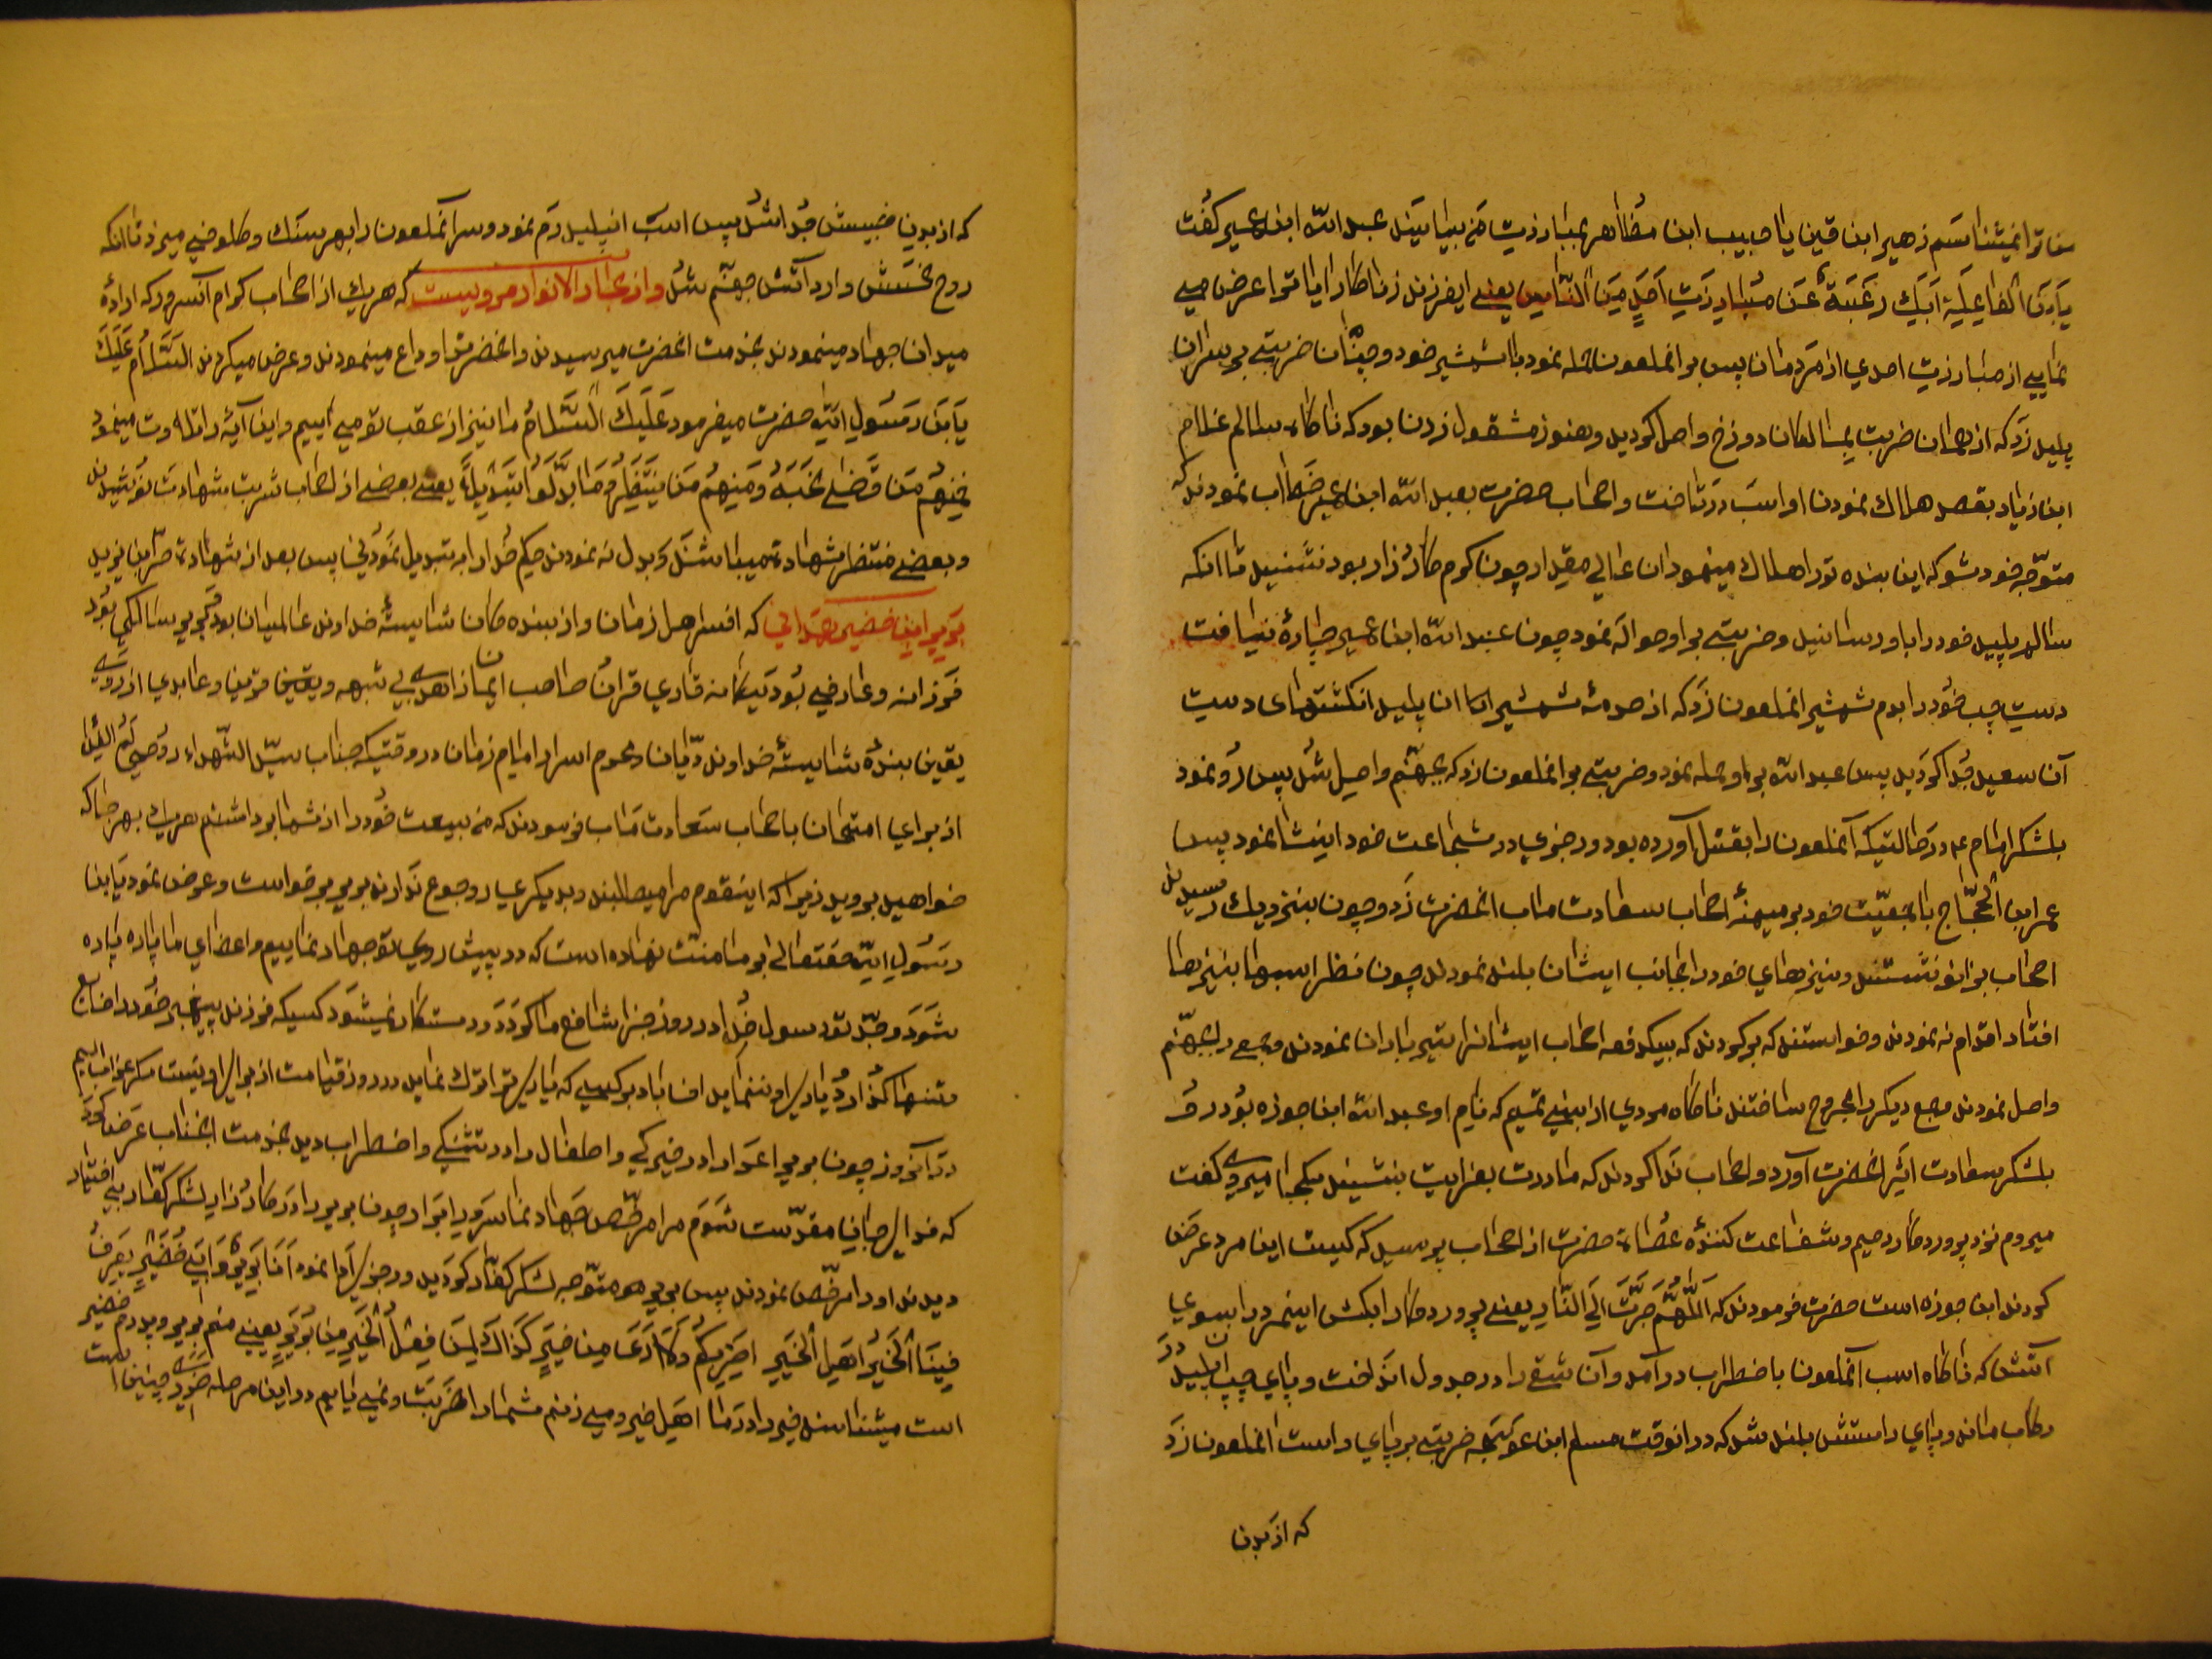 من ترا نمیشناسم زهیر ابن قین یا حبیب ابن مظاهر بمبارزت من بیایند عبد الله ابن عمیر گفت
یابن الفاعلة ابک رغبة عن مبارزت احد من الناس یعنی ایفرزند زناکار ایا ترا اعرض می
نمایی از مبارزت احدی از مردمان پس بر انملعون حمله نمود با شمشیر خود و چنان ضربتی بر سر ان
پلید زد که از همان ضربت بمالکان دوزخ واصل گردید و هنوز مشغول زدن بود که ناگاه سالم غلام
ابن زیاد بقصد هلاک نمودن او اسب در تاخت و اصحاب حضرت بعبد الله ابن عمیر خطاب نمودند که
متوجه خود شو که این بنده تو را هلاک مینمود ان عالی مقدار چون گرم کارزار بود نشنید تا انکه
سالم پلید خود را باو رسانید و ضربتی بر او حواله نمود چون عبد الله ابن عمیر چاره نیافت
دست چپ خود را بدم شمشیر انملعون زد که از صدمه شمشیر ان پلید انگشتهای دست
آن سعید جدا گردید پس عبد الله بر او حمله نمود و ضربتی بر انملعون زد که بجهنم واصل شد پس رو نمود
بلشکر امام ع در حالتیکه آنملعون را بقتل آورده بود و رجزی در شجاعت خود انشا نمود پس
عمر ابن الحجاج با جمعیت خود بر میمنهٔ اصحاب سعادت ماب انحضرت زد و چون بنزدیک رسیدند
اصحاب بزانو نشستند و نیزهای خود را بجانب ایشان بلند نمودند چون نظر اسبها بنیزها
افتاد اقدام نه نمودند و خواستند که برگردند که بیکدفعه اصحاب ایشانرا تیر باران نمودند و جمعی را بجهنم
واصل نمودند و جمع دیگر را مجروح ساختند ناگاه مردی از بنی تمیم که نام او عبد الله ابن حوزه بود رو
بلشکر سعادت اثر انحضرت آورد و اصحاب ندا کردند که مادرت بعزایت بنشیند بکجا میروی گفت
میروم نزد پروردگار رحیم و شفاعت کنندهٔ عصاة حضرت از اصحاب پرسید که کیست این مرد عرض
کردند ابن حوزه است حضرت فرمودند که اللهم جره الی النار یعنی پروردگارا بکش اینمرد را بسوی
آتش که ناگاه اسب آنملعون باضطراب در آمد و آن شقی را در جدول انداخت و پای چپ ان پلید در
رکاب ماند و پای راستش بلند شد که در انوقت مسلم ابن عوسجه ضربتی بر پای راست انملعون زد
که از بدن
که از بدن خبیسش جدا شد پس اسب ان پلید رم نمود و سر آنملعون را بهر سنک و کلوخی میزد تا انکه
روح نحسش وارد آتش جهنم شد و از بحار الانوار مرویست که هر یک از اصحاب کرام آنسرور که ارادهٔ
میدان جهاد مینمودند بخدمت انحضرت میرسیدند و انحضرت را وداع مینمودند و عرض میکردند السلام علیک
یابن رسول الله حضرت میفرمود علیک السلام ما نیز از عقب تو می آییم و این آیه را تلاوت مینمود
فمنهم من قضی نحبه و منهم من ینتظر و ما بدلوا تبدیلا یعنی بعضی از اصحاب شربت شهادت نوشیدند
و بعضی منتظر شهادت میباشند و بدل نه نمودند حکم خدا را به تبدیل نمودنی پس بعد از شهادت حر ابن یزید
بریر ابن خضیر همدانی که افسر اهل زمان و از بنده کان شایستهٔ خداوند عالمیان بود بریر سالکی بود
فرزانه و عارفی بود یگانه قاری قران صاحب ایمان زاهدی بی شبهه و یقین قرین و عابدی از روی
یقین بندهٔ شایستهٔ خداوند دیان و محرم اسرار امام زمان در وقتیکه جناب سید الشهداء روحی له الفدا
از برای امتحان باصحاب سعادت ماب فرمودند که من بیعت خود را از شما برداشتم هر یک بهر جا که
خواهید بروید زیرا که اینقوم مرا میطلبند و بدیگر عیار رجوع ندارند بریر بر خواست و عرض نمود یابن
رسول الله حقتعالی بر ما منت نهاده است که در پیش روی تو جهاد نماییم و اعضای ما پاره پاره
شود و جد تو رسول خدا در روز جزا شافع ما گردد و رستگار نمیشود کسیکه فرزند پیغمبر خود را ضایع
و تنها گذارد و یاری او ننماید اف باد بر کسی که یاری ترا ترک نماید در روز قیامت از برای او نیست مگر عذاب الیم
در آنروز چون بریر اعدا را در خیرگی و اطفال را در تشنگی و اضطراب دید بخدمت انجناب عرض کرد
که فدای جان مقدست شوم مرا مرخص جهاد نما سرور ابرار چون بریر را در کارزار لشکر کفار بی اختیار
دیدند او را مرخص نمودند پس بریر همو متوجه لشکر کفار گردید و رجزی ادا نمود انا بریر و ابی خضیر یعرف
فینا الخیر اهل الخیر اضربکم و لا ادعی من ضیر کذاک لمن فعل الخیر من بریر یعنی منم بریر و پدرم خضیر
است میشناسند خیر را در ما اهل خیر و می زنم شما را ضربت و نمی نایم در این مرحله ضرری چنین است